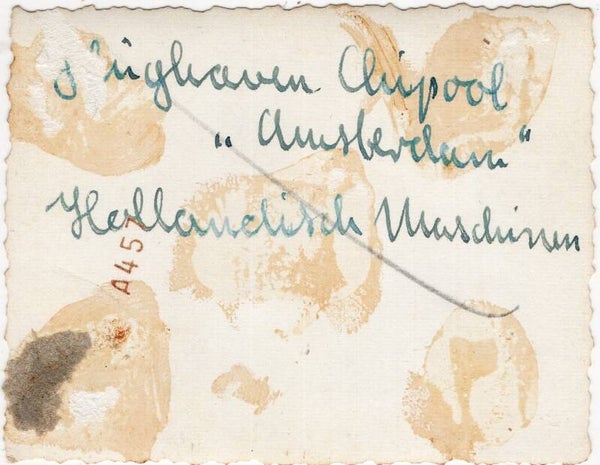 Flughaven Chipool
„Amsterdam"
Hollandisch Maschinen
A457